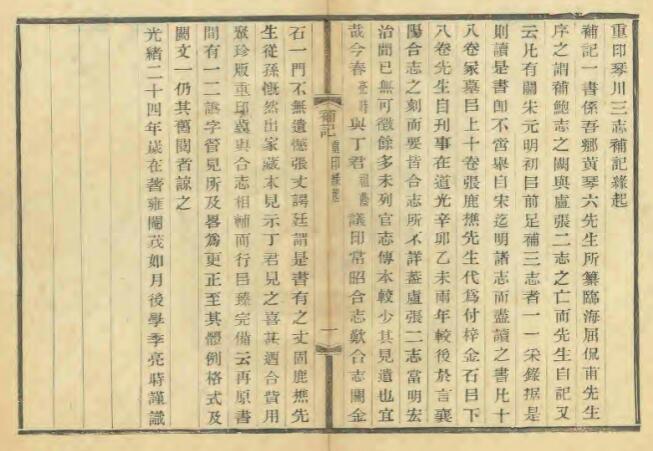 重印琴川三志補記緣起
補記一書係吾鄉黃琴六先生所纂臨海屈侃甫先生
序之謂補鮑志之闕與盧張二志之亡而先生自記又
云凡有關宋元明初㠯前足補三志者一一采錄据是
則讀是書卽不啻舉自宋迄明諸志而盡讀之書凡十
八卷家墓㠯上十卷張鹿樵先生代爲付梓金石㠯下
八卷先生自刊事在道光辛卯乙未兩年較後於言襄
陽合志之刻而要皆合志所不詳葢盧張二志當明宏
治閒已無可徵餘多未列官志傳本較少其見遺也宜
哉今春亮時與丁君祖蔭議印常昭合志歎合志闕金
補記
重印緣起
一
石一門不無遺憾張丈諤廷謂是書有之丈固鹿樵先
生從孫慨然出家藏本見示丁君見之喜甚迺合貲用
聚珍版重印冀與合志相輔而行㠯臻完備云再原書
閒有一二譌字管見所及畧爲更正至其體例格式及
闕文一仍其舊閱者諒之
光緒二十四年歲在著雍閹茂如月後學季亮時謹識